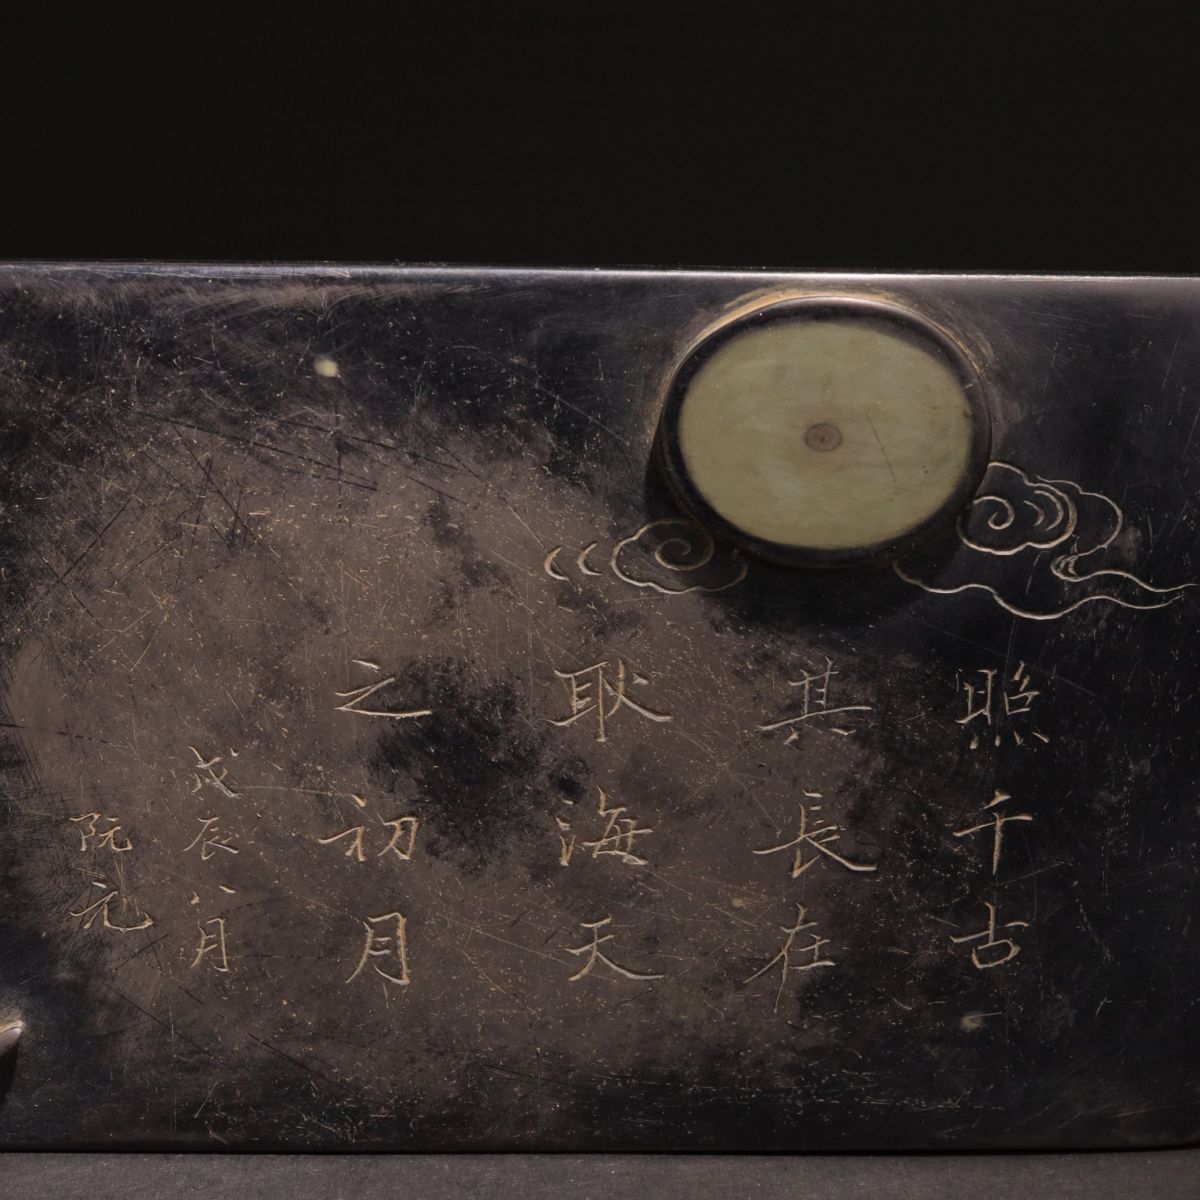 照千古
其長在
耿海天
之初月
戊辰八月
阮元